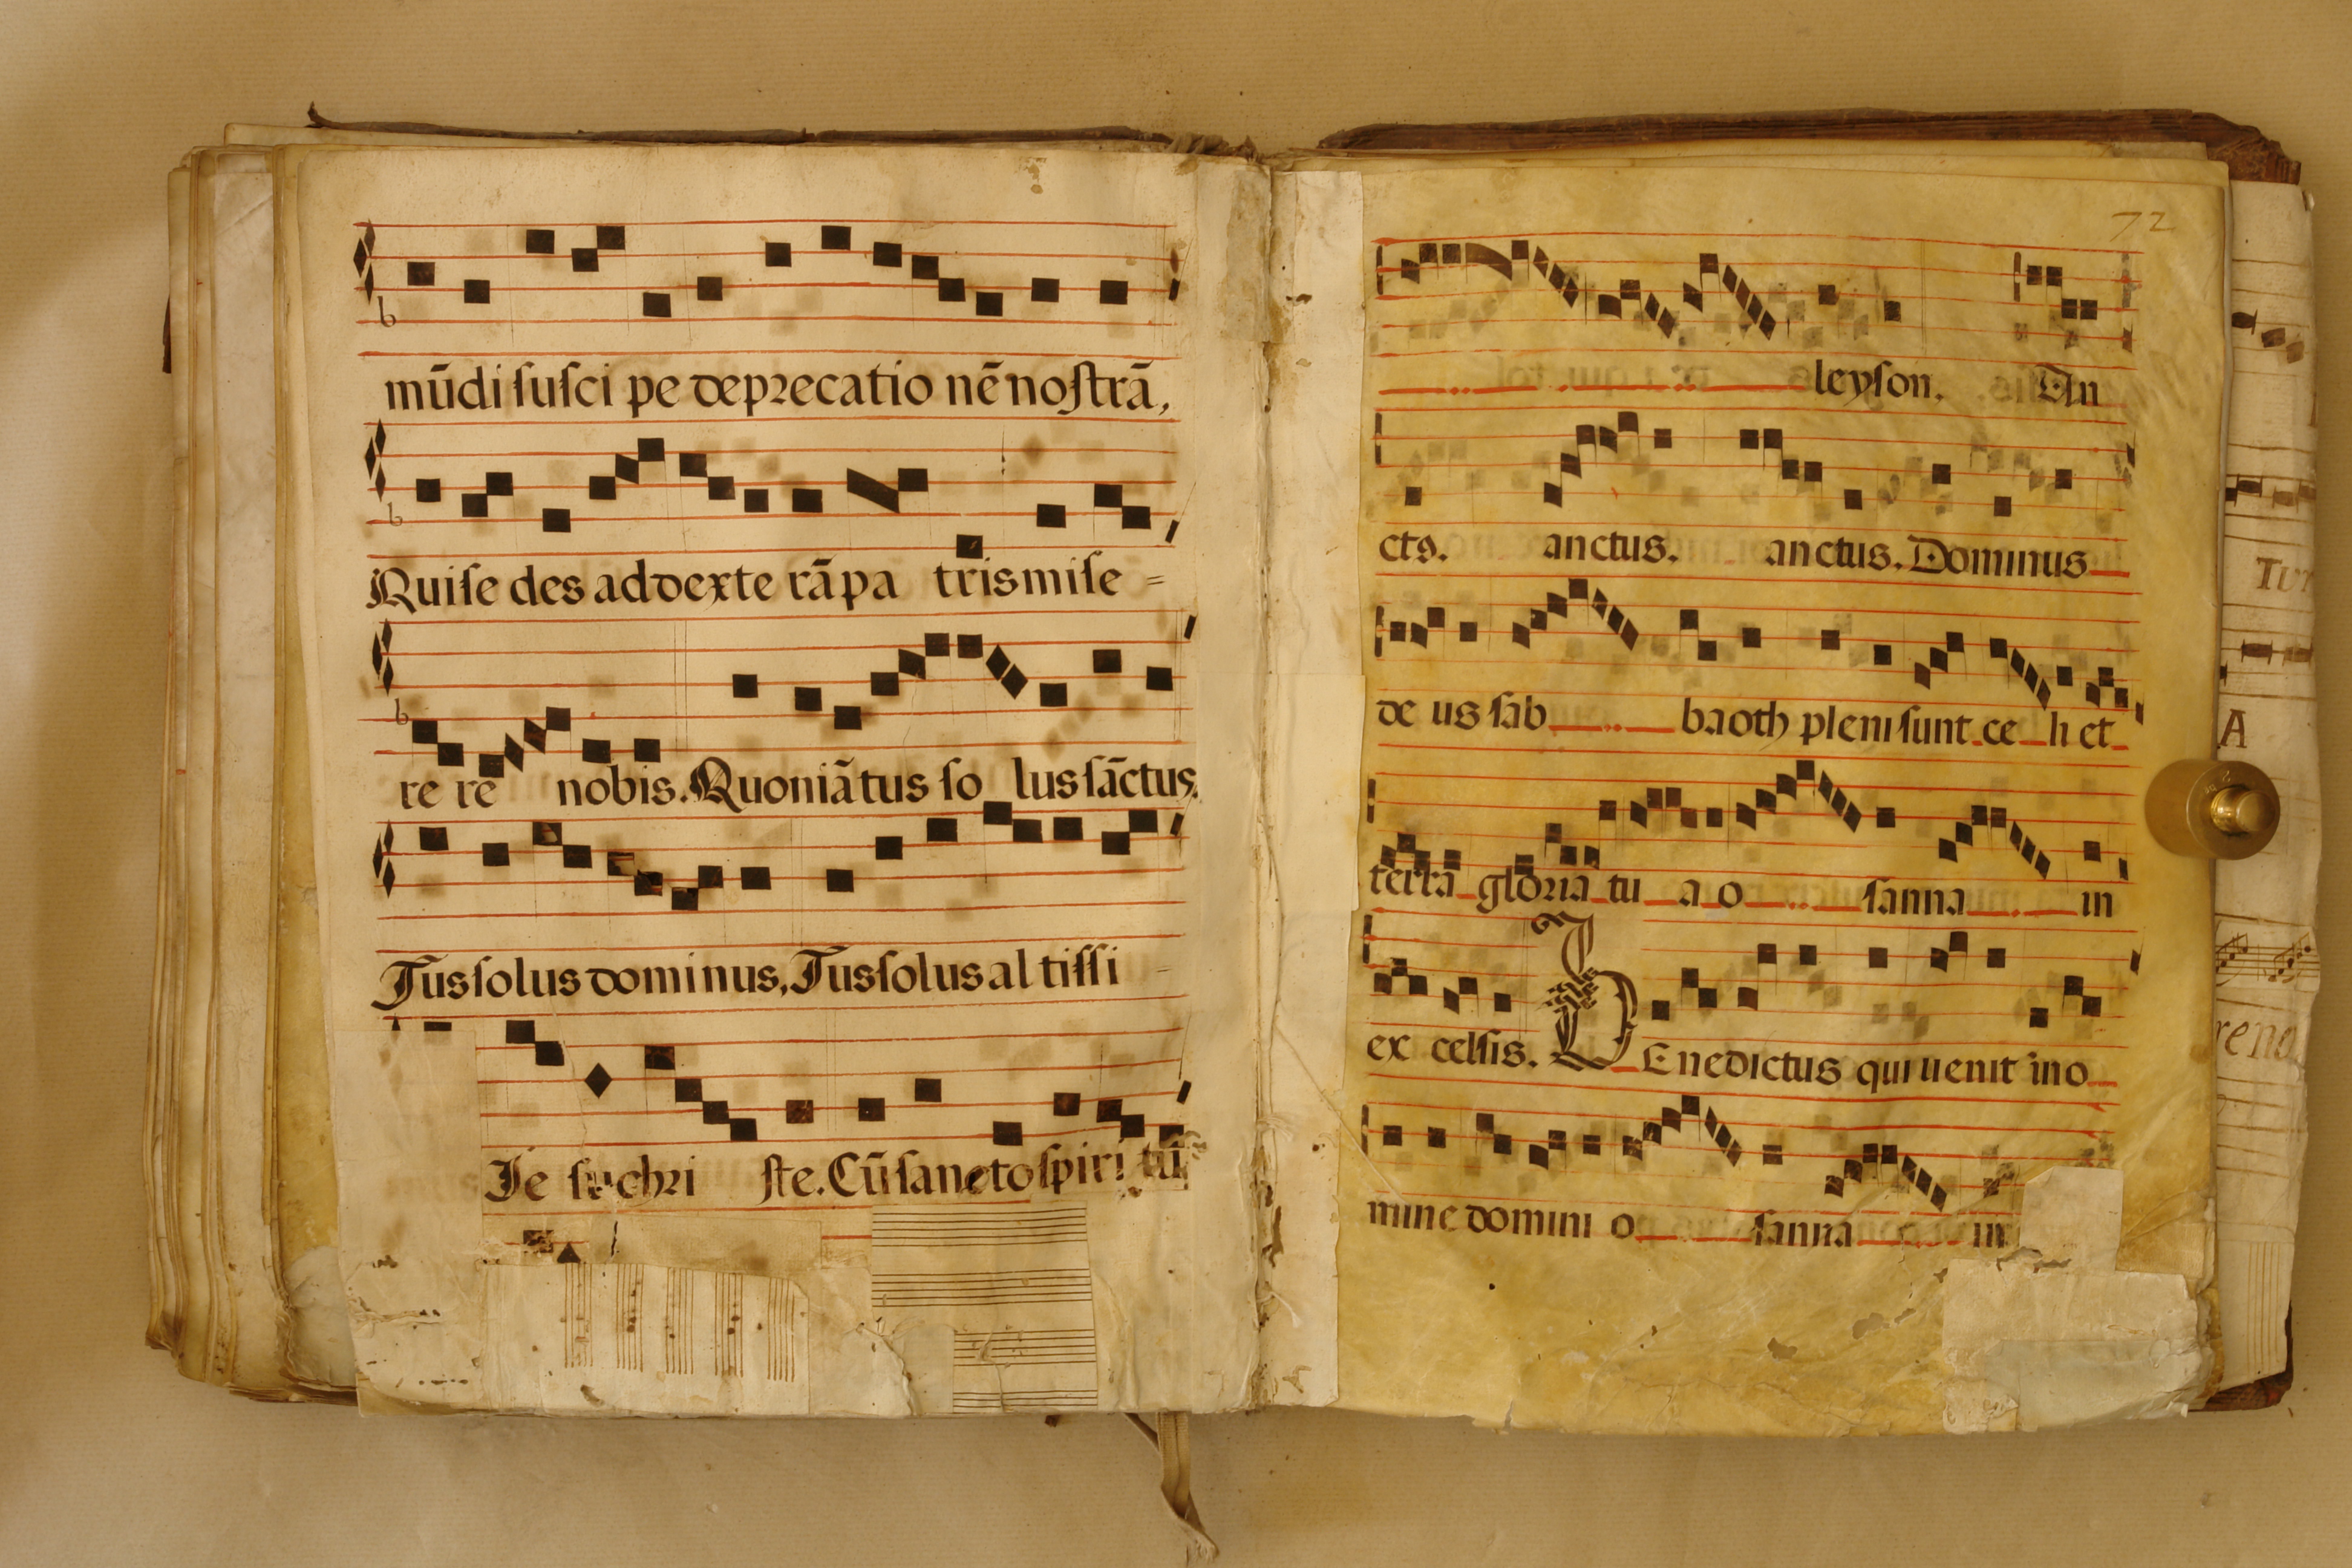 mūdi ſuſci pe deprecatio nē noſtrā,
Qui ſe des ad dexte rā pa tris miſe =
re re nobis. Quoniā tus ſo lus ſāctus.
Tus ſolus dominus, Tus ſolus al tiſſi -
Je ſu chri ſte. Cū ſancto ſpiri tū
72
leyſon. An
cts. anctus. anctus. Dominus
de us ſab baoth pleni ſunt ce li et
terra gloria tu a o ſanna in
ex celſis. BEnedictus qui uenit in o
mine domini o ſanna in
A